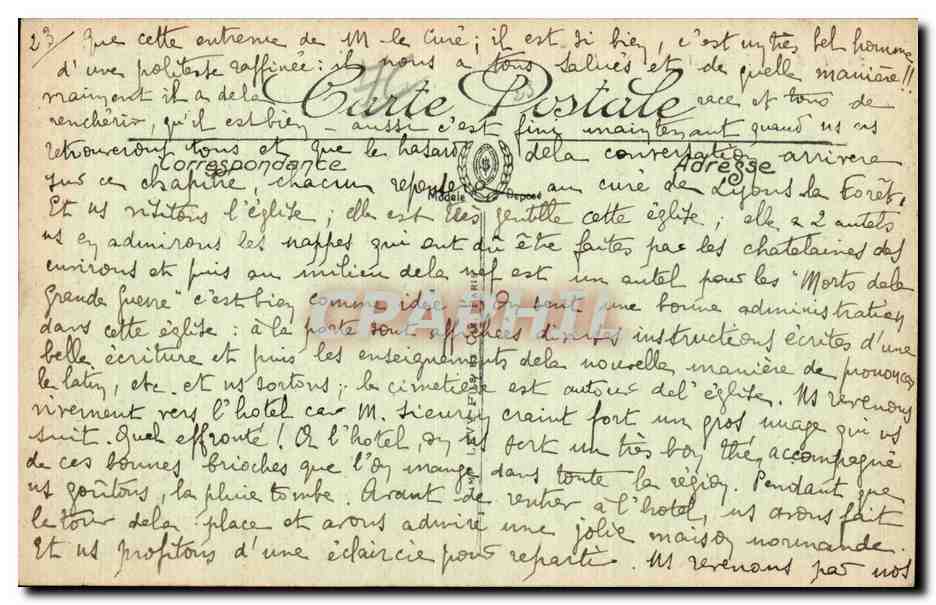 23/ que cette entrevue de M. le Curé; il est si bien, c'est un très bel homme
d'une politesse raffinée: il nous a tous salués et de quelle manière!!
Carte Postale
vraiment il a de la race et tous de
renchérir, qu'il est bien - aussi c'est fini maintenant quand ns ns
retrouverons tous et que le hasard de la conversation arrivera
Correspondance
Adresse
sur ce chapitre, chacun repense au curé de Lyons la Forêt.
Modèle Déposé
Et ns visitons l'église; elle est très gentille cette église; elle a 2 autels
ns en admirons les nappes qui ont dû être faites par les chatelaines des
environs et puis au milieu de la nef est un autel pour les "Morts de la
Grande Guerre" c'est bien comme idée. On sent une bonne administration
dans cette église: à la porte sont affichées diverses instructions écrites d'une
belle écriture et puis les enseignements de la nouvelle manière de prononcer
le latin, etc. et ns sortons; le cimetière est autour de l'église. Ns revenons
vivement vers l'hotel car M. Sieurin craint fort un gros nuage qui ns
suit. Quel effronté! A l'hotel, on ns sert un très bon thé, accompagné
de ces bonnes brioches que l'on mange dans toute la région. Pendant que
ns goûtons, la pluie tombe. Avant de rentrer à l'hotel, ns avons fait
le tour de la place et avons admiré une jolie maison normande.
Et ns profitons d'une éclaircie pour repartir. Ns revenons par nos
CPAPHIL